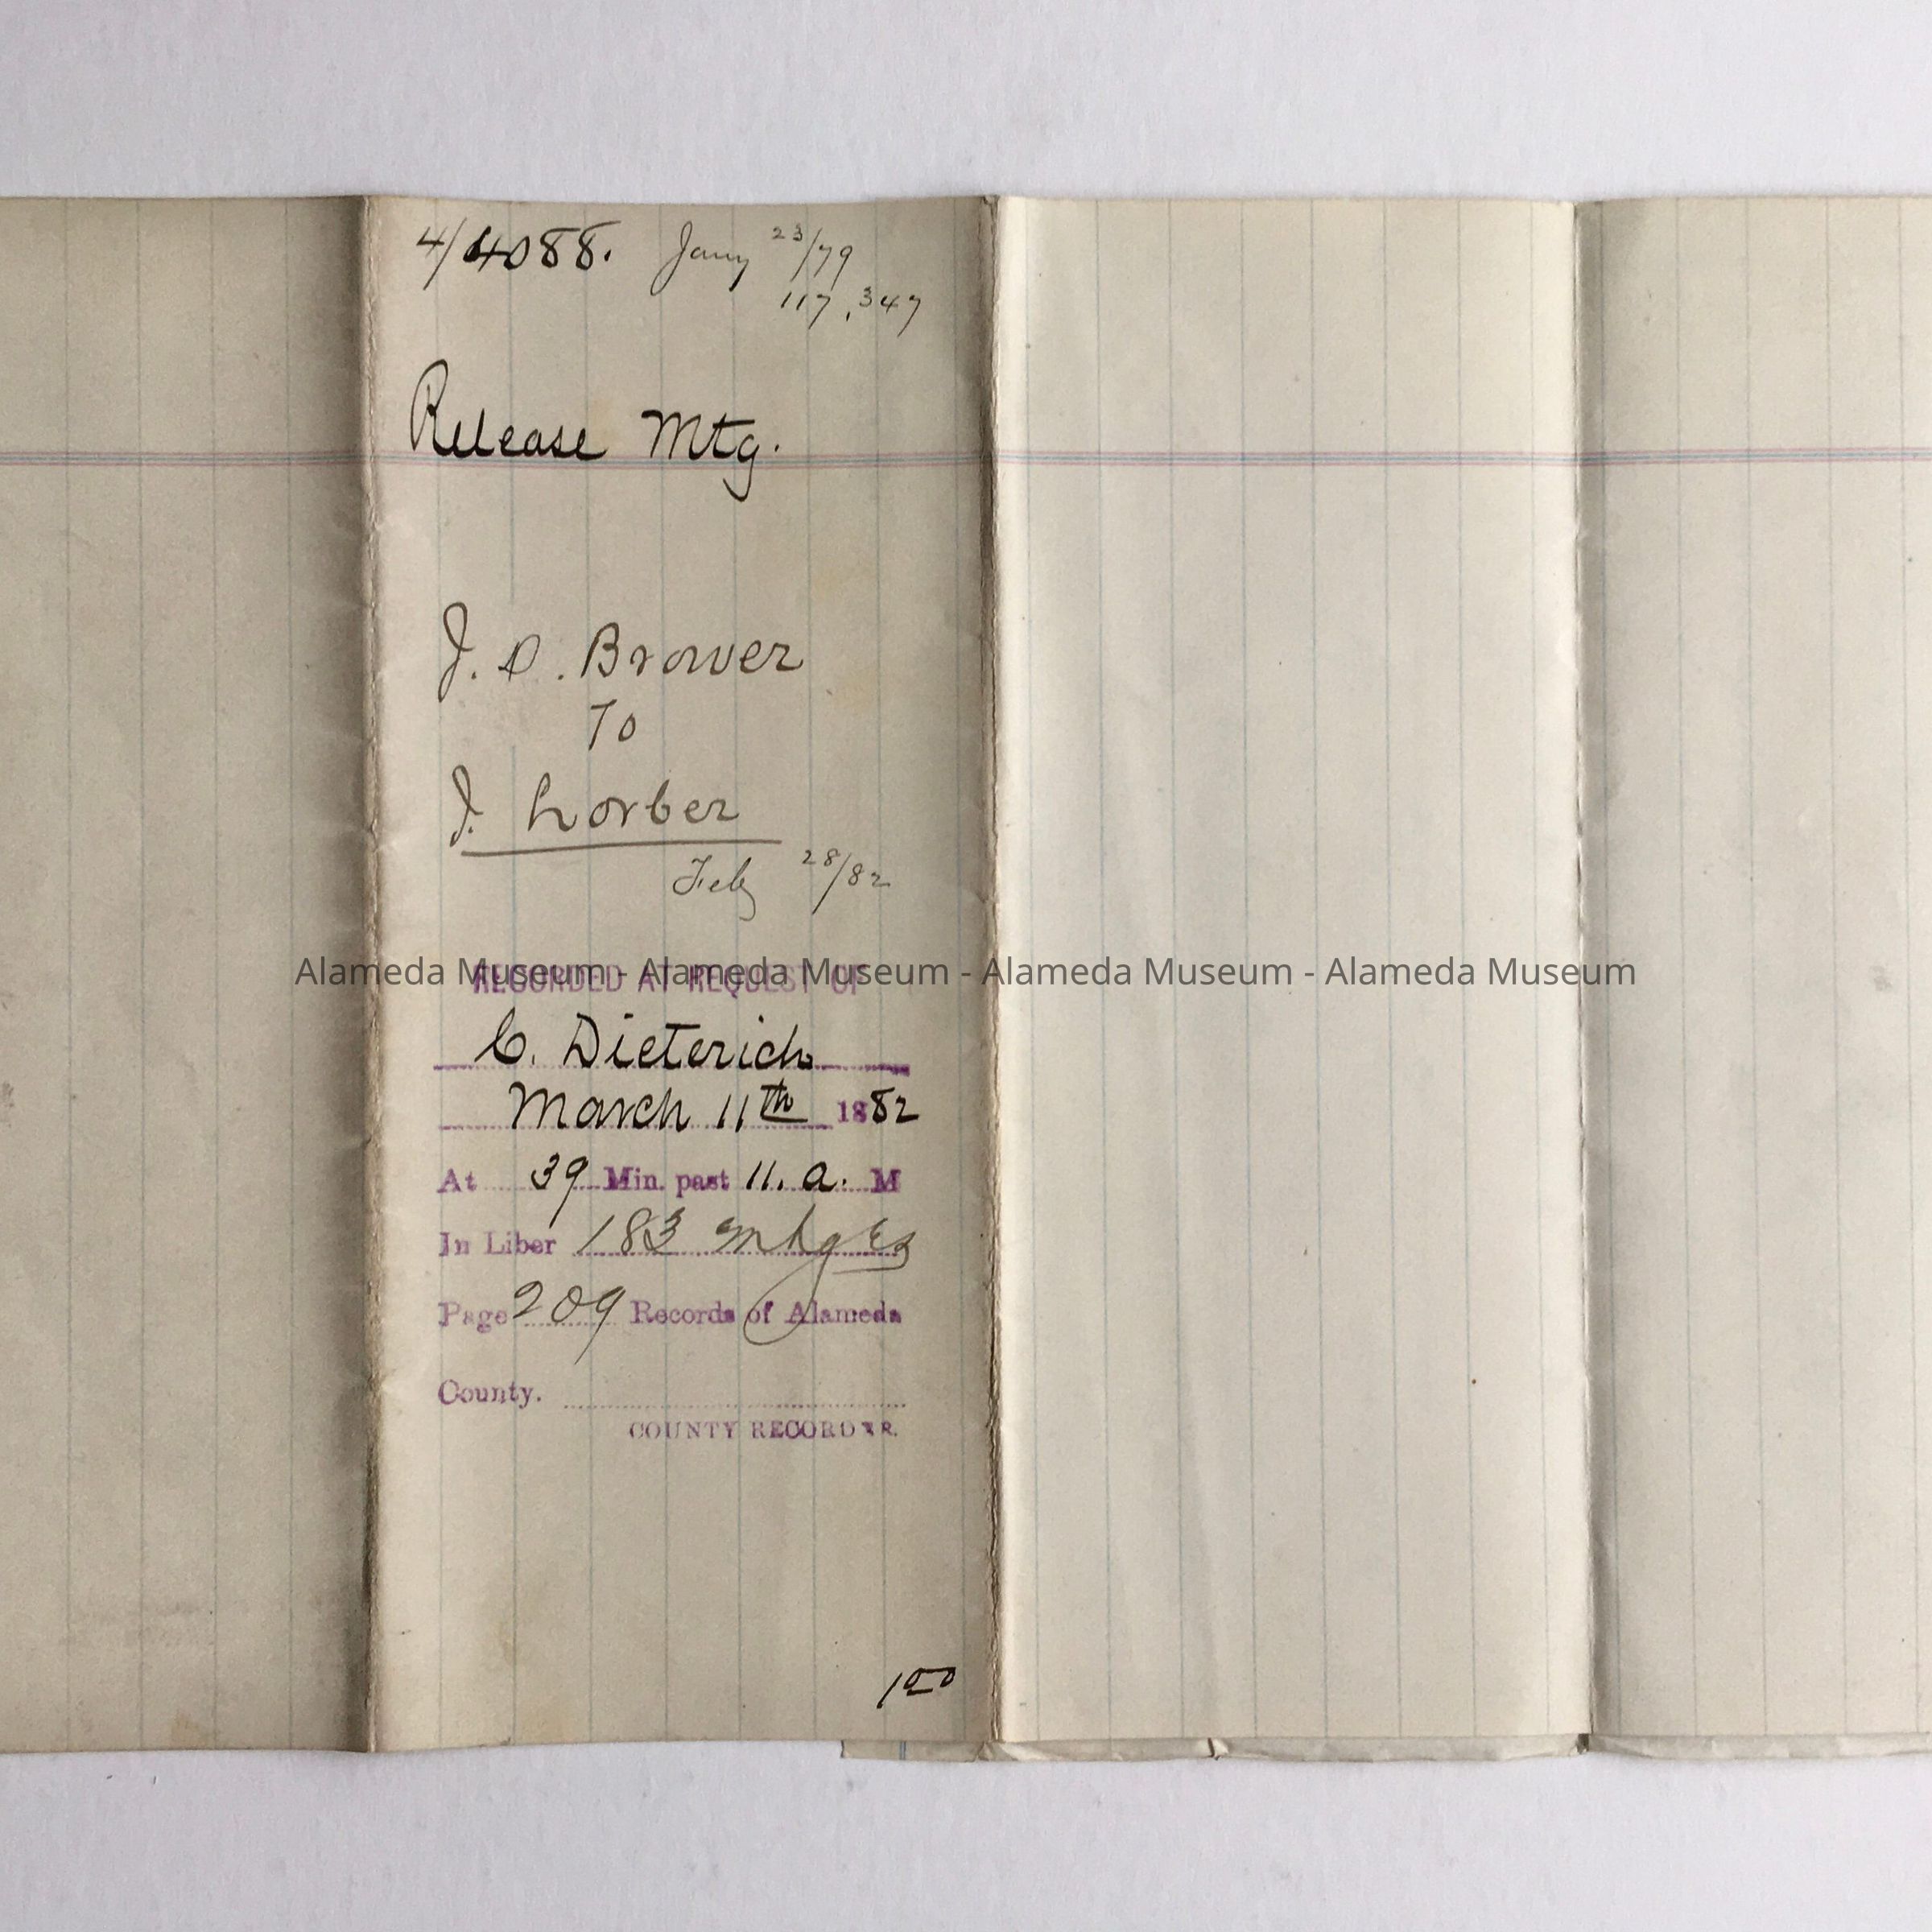 4/4088. Jany 23/79
117,347
Release Mtg.
J. D. Brower
To
J. Lorber
Feby 28/82
Alameda Museum - Alameda Museum - Alameda Museum - Alameda Museum
RECORDED AT REQUEST OF
C. Dieterich
March 11th 1882
At 39 Min. past 11. a. M
In Liber 183 Mtges
Page 209 Records of Alameda
County.
COUNTY RECORDER.
100